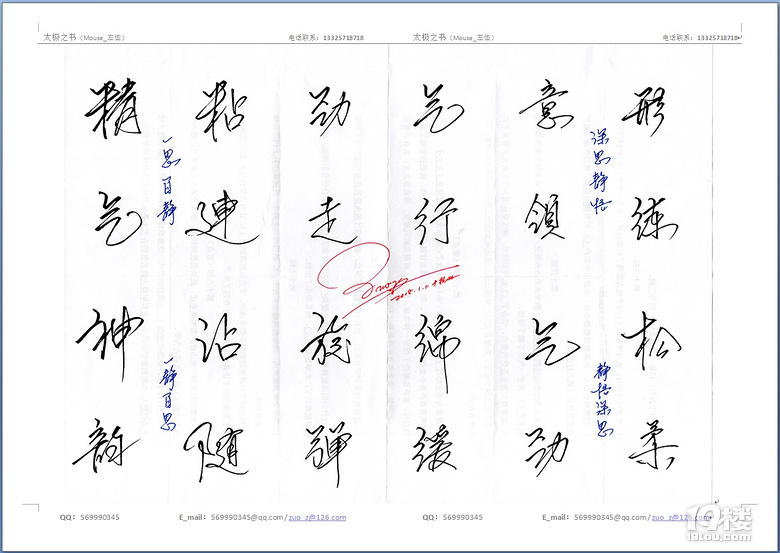 太极之书（Mouse_左齿） 电话联系：13325718718
太极之书（Mouse_左齿） 电话联系：13325718718
形練松柔
深思静悟
静悟深思
意領气劲
气行綿緩
劲走旋彈
粘連沾随
一思百静
一静百思
精气神韵
QQ：569990345 E_mail：569990345@qq.com/zuo_z@126.com
QQ：569990345 E_mail：569990345@qq.com/zuo_z@126.com
19楼
19lou.com